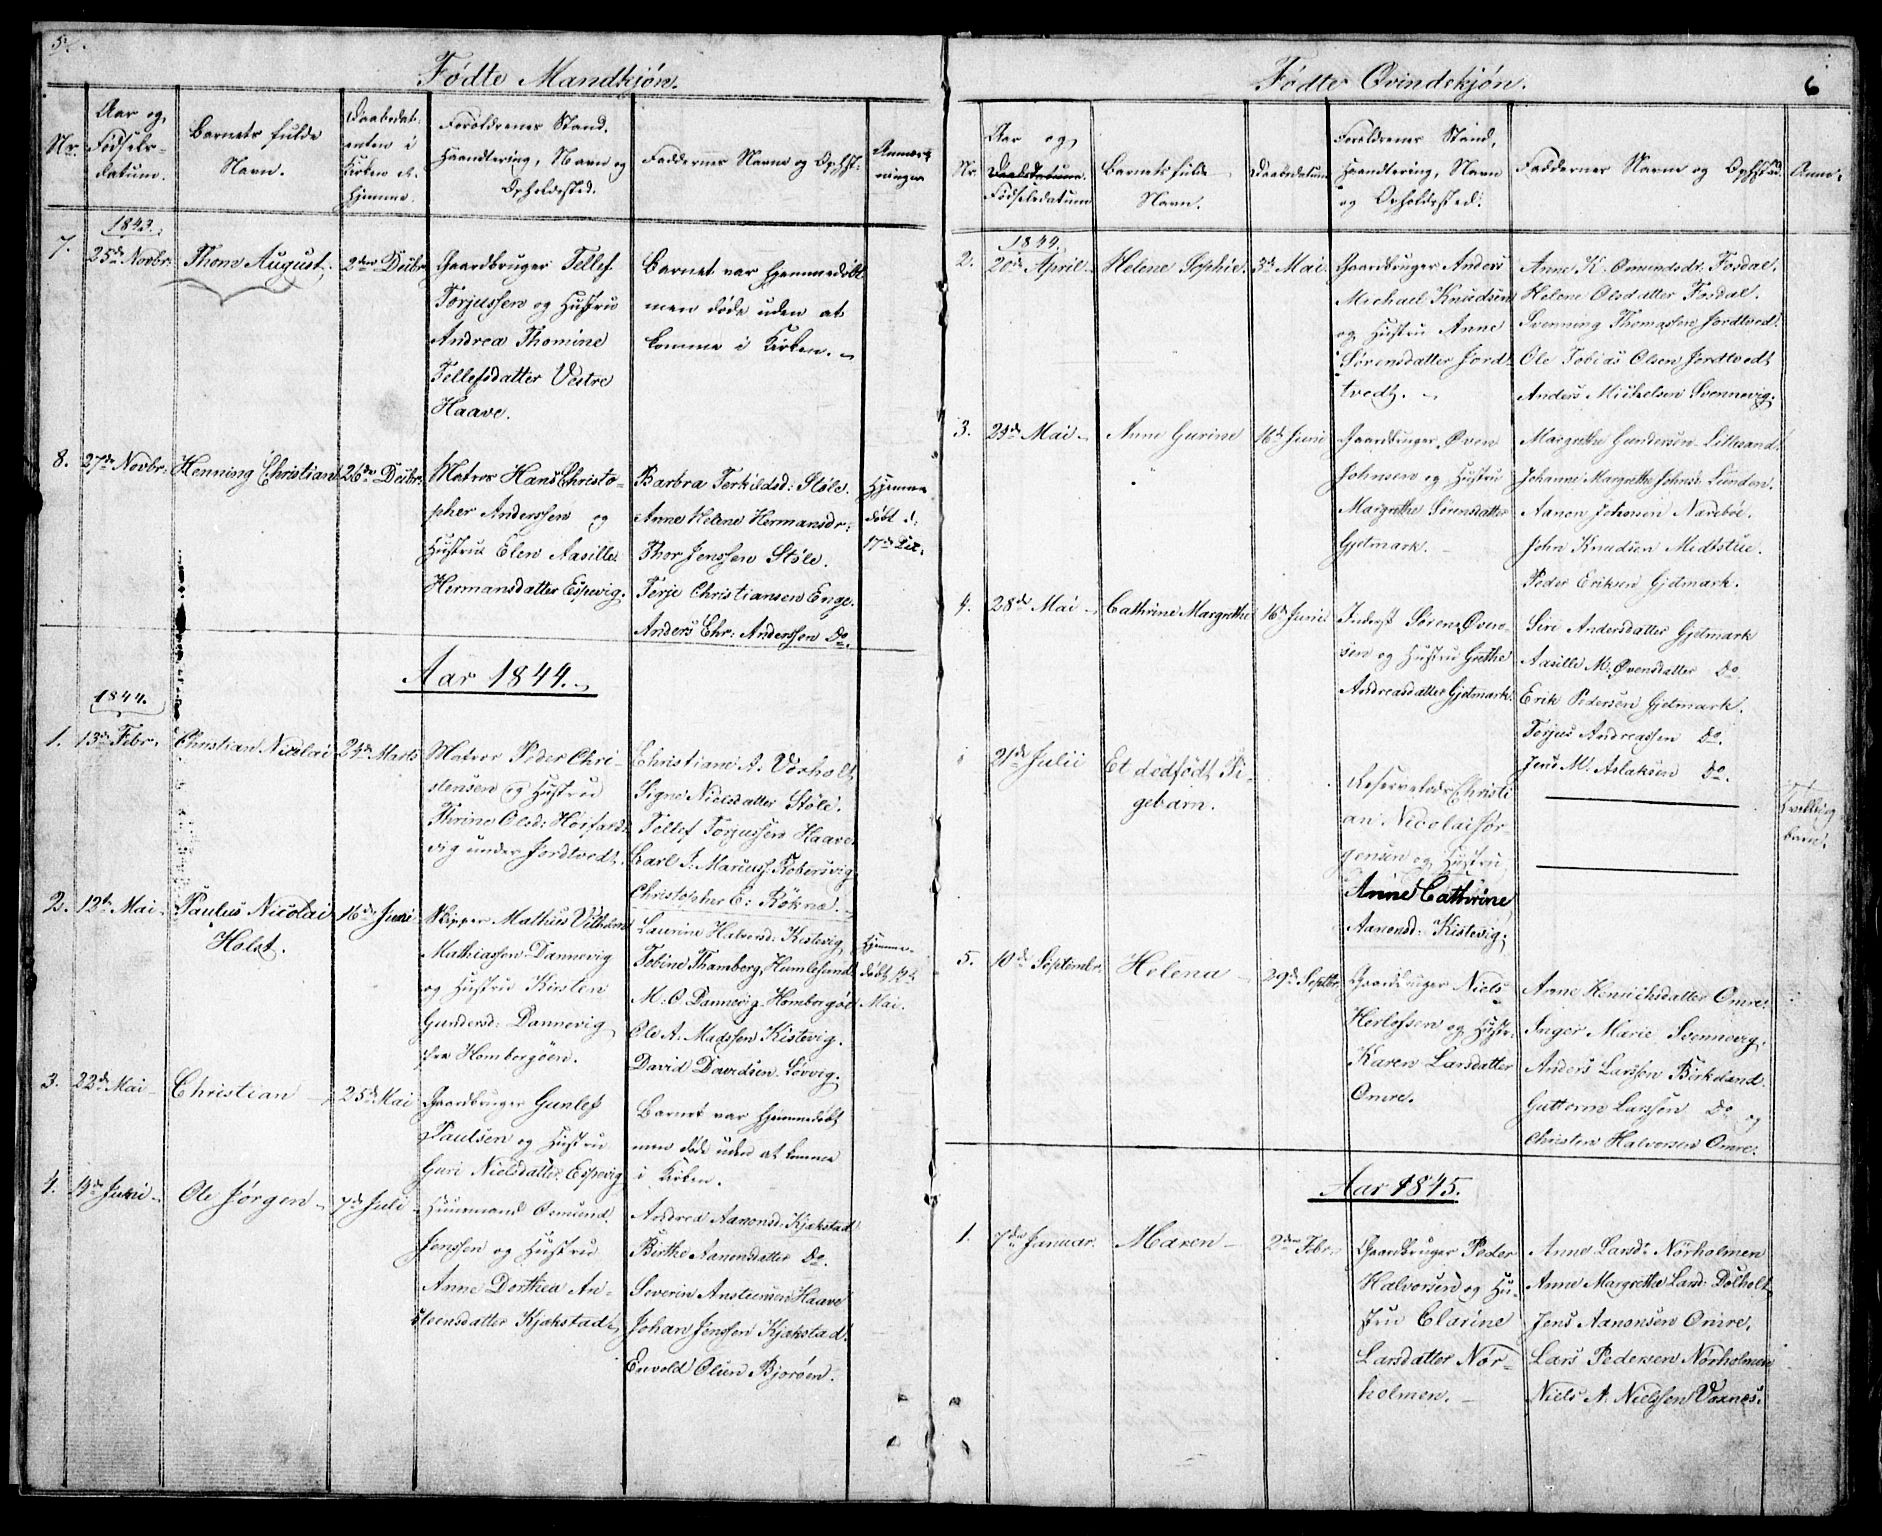 5.
Fødte Mandkjøn.
Nr.
Aar og
Fødsels-
datum.
Barnets fulde
Navn.
Daabsdat-
enten i
Kirken el.
Hjemme.
Forældrenes Stand,
Haandtering, Navn og
Opholdssted.
Faddernes Navne og Ophst:
Anmær-
ninger
1843.
7.
25de Novbr.
Thom August.
2den Decbr.
Gaardbruger Tellef
Torjussen og Hustru
Andrea Thomine
Tellefsdatter Vestre
Haave.
Barnet var hjemmedøbt
men døde uden at
komme i Kirken.
8.
27de Novbr.
Henning Christian
26de Decbr.
Matros Hans Christo-
pher Anderssen og
Hustrue Elen Aasille
Hermansdatter Espevig.
Barbra Terkildsd: Støle.
Anne Helene Hermansdr:
Thor Jenssen Støle.
Terje Christiansen Enge.
Anders Chr: Anderssen Do.
Hjemme
døbt d.
17de
Aar 1844.
1844.
1.
13de Febr.
Christian Nicolai
24de Marts
Matros Peder Chri-
stensen og Hustru
Thrine Olsd:
vig under Jordtvedt.
Christiane A. Vesholt
Signe Nielsdatter Støle.
Tellef Torjussen Haave.
Carl J. Mariuss. Kobersvig
Christopher C:
2.
12te Mai
Paulus Nicolai
Holst.
16de Juni
Skipper Mathias Vilhelm
Mathiassen Dannevig
og Hustrue Kirsten
Gundersd: Dannevig
fra Homborgøen.
Laurine Halvorsd: Kistevig,
Tobine Thamberg, Humlesund
M: C. Dannevig, Homborgøen
Ole A. Madssen Kistevig.
David Davidsen Sørvig.
Hjemme-
døbt
Mai.
3.
22de Mai
Christian
25de Mai
Gaardbruger Gunlef
Paulsen og Hustru
Guri Nielsdatter Espevig
Barnet var hjemmedøbt
men døde uden at komme
i Kirken.
4.
14de Juni
Ole Jørgen
7de Juli
Huusmand Osmund
Jenssen og Hustru
Anne Dorthea An-
steensdatter Kjøkstad
Andrea Aanonsd: Kjøkstad
Birthe Aanensdatter Do.
Severin Anstensen Haave
Johan Jenssen Kjøkstad.
Envold Olsen Bjorøen.
6
Fødte Qvindekjøn.
Nr.
Aar og
Daabsdatum
Fødselsdatum
Barnets fulde
Navn.
Daabsdatum
Forældrenes Stand,
Haandtering, Navn
og Opholdssted.
Faddernes Navne og Ophstd.
Anm:
1844.
2.
20de April
Helene Sophie.
3de Mai
Gaardbruger Anders
Michael Knudsen
og Hustru Anne
Sørensdatter Jord-
tvedt.
Anne K. Omundsdr. Fosdal.
Helene Olsdatter Fosdal.
Svenning Thomassen Jordtvedt.
Ole Tobias Olsen Jordtvedt
Anders Michelsen Svennevig.
3.
24de Mai
Anne Gurine
16de Juni
Gaardbruger Øven
Johnsen og Hustru
Margrethe Sørensdatter
Gjetmark.
Margrethe Gundersen Lillesand
Johanne Margrethe Johnsd: Lunden.
Aanon Johnsen Narebøe.
John Knudsen Midtstue.
Peder Eriksen Gjetmark.
4.
28de Mai
Cathrine Margrethe
16de Juni
Inderst Søren Øven-
sen og Hustru Grethe
Andreasdatter Gjetmark.
Siri Andersdatter Gjetmark
Aasille M. Øvensdatter Do
Erik Pedersen Gjetmark.
Torjus Andreassen Do.
Jens M. Aslaksen Do.
21de Julii
Et dødfødt Pi-
gebarn.
Reservelods Christi
an Nicolai Jør
gensen og Hustru
Anne Cathrine
Aanonsd: Kistevig.
Tvilling
barn.
5.
10de Septembr.
Helena
29de Septbr.
Gaardbruger Niels
Herlofsen og Hustr.
Karen Larsdatter
Omre.
Anne Henrichsdatter Omre.
Inger Marie Svennevig.
Anders Larssen Birkeland.
Guttorm Larssen Do og
Christen Halvorsen Omre.
Aar 1845.
1.
7de Januar.
Maren
2den Febr.
Gaardbruger Peder
Halvorsen og Hu-
stru Clarine
Larsdatter Nør-
holmen.
Anne Larsd: Nørholmen
Anne Margrethe Larsd: Dølholt
Jens Aanonsen Omre,
Lars Pedersen Nørholmen
Niels A. Nielssen Vaxnes.